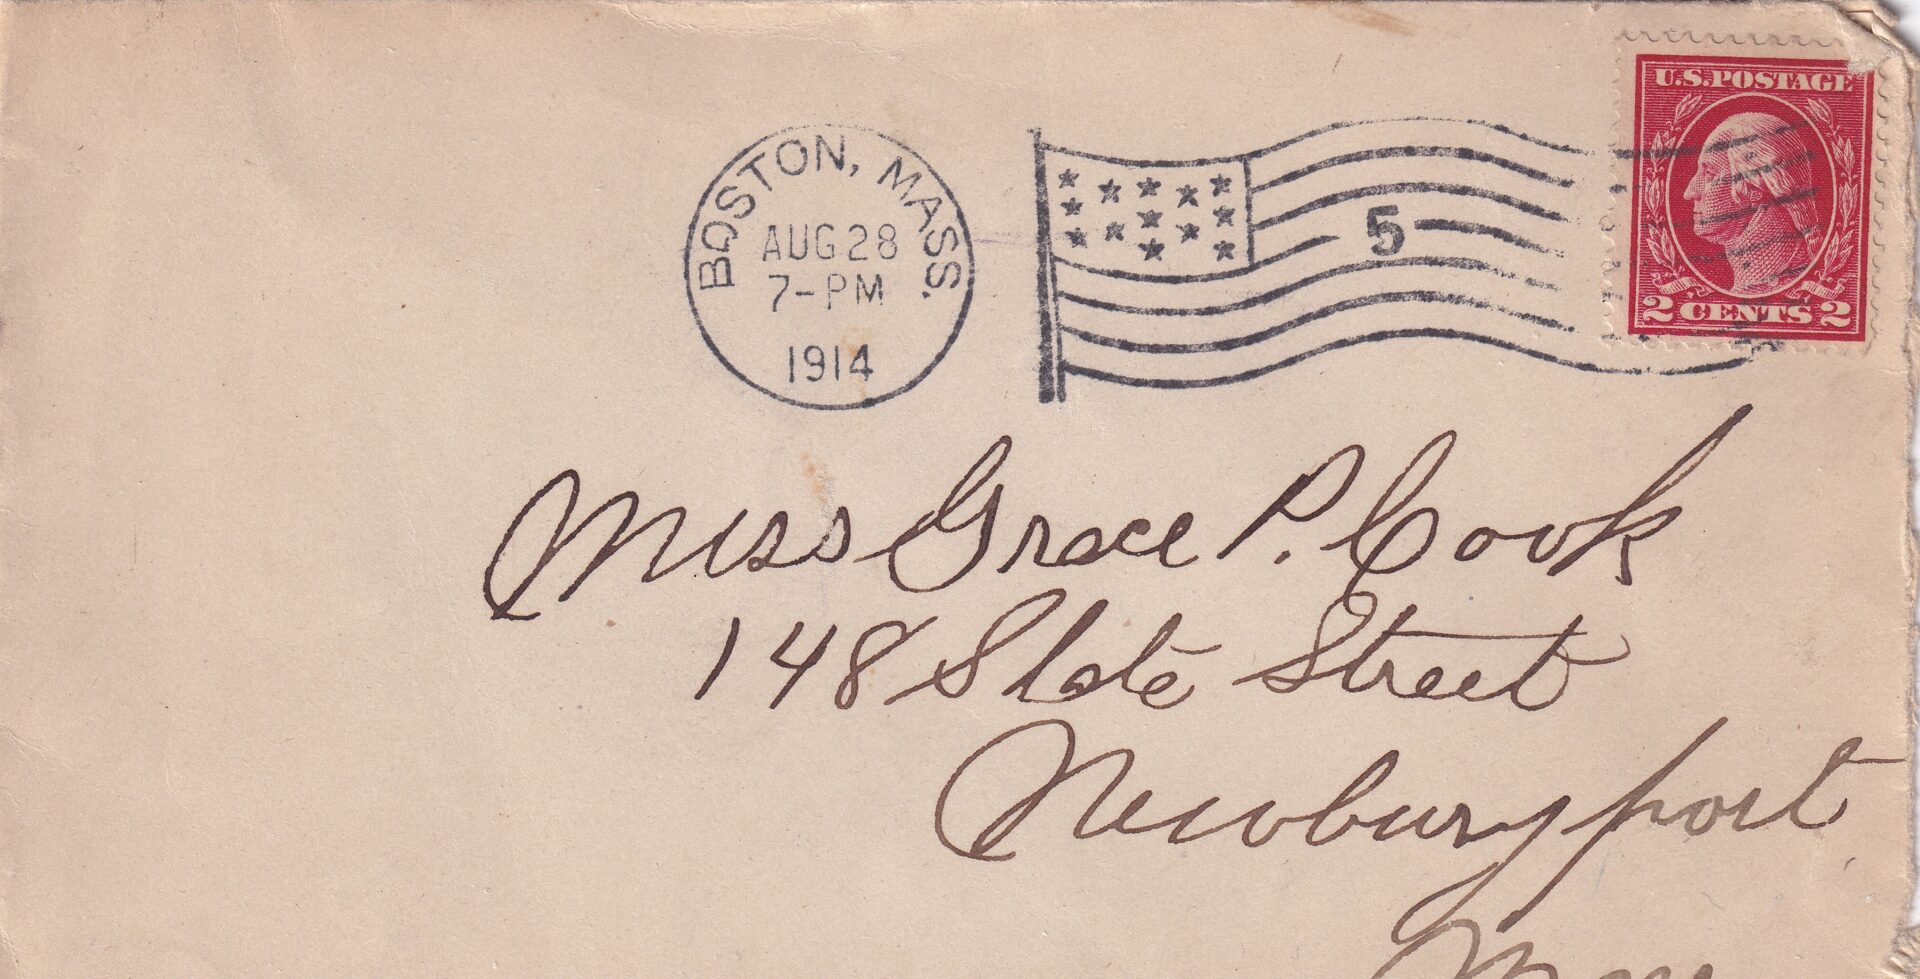 U.S. POSTAGE
BOSTON, MASS.
AUG 28
7-PM
1914
5
2 CENTS 2
Miss Grace P. Cook
148 State Street
Newburyport